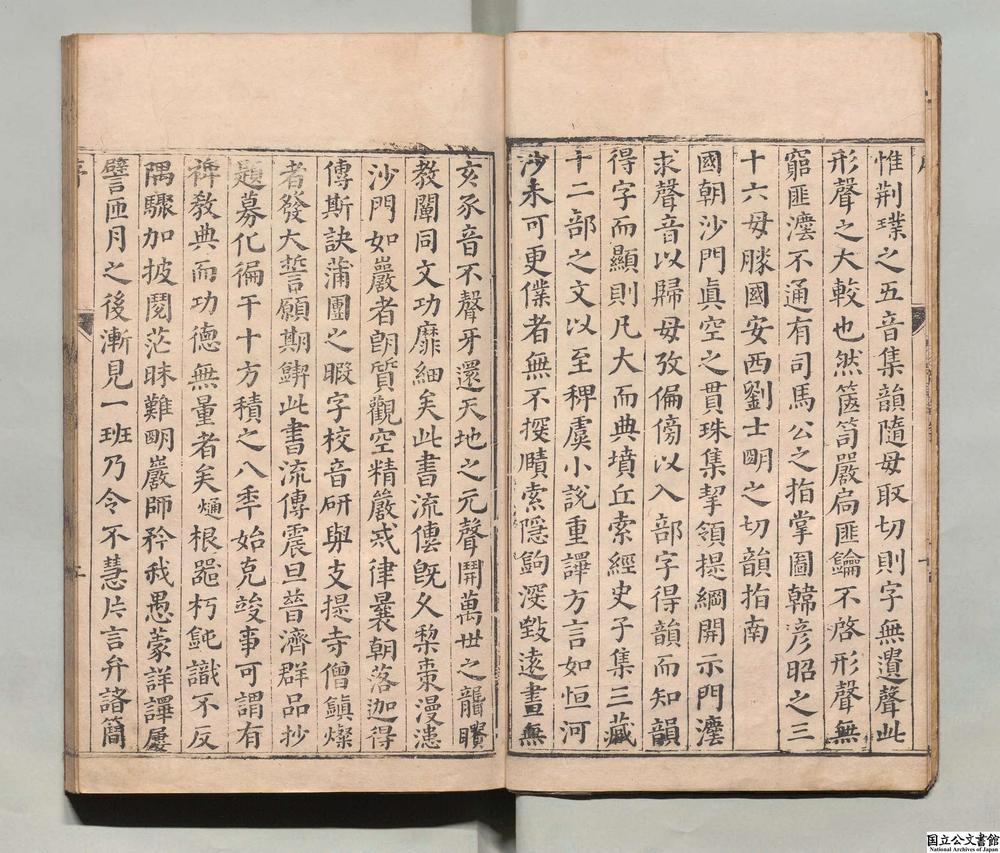 惟荆璞之五音集韻隨母取切則字無遺聲此
形聲之大較也然篋笥嚴扃匪鑰不啓形聲無
窮匪灋不通有司馬公之指掌圖韓彦昭之三
十六母勝國安西劉士明之切韻指南
國朝沙門眞空之貫珠集挈領提綱開示門灋
求聲音以歸母攷偏傍以入部字得韻而知韻
得字而顯則凡大而典墳丘索經史子集三藏
十二部之文以至稗虞小說重譯方言如恒河
沙未可更僕者無不探賾索隱鉤深致遠畫無
亥豕音不聲牙還天地之元聲開萬世之聾瞶
教闡同文功靡細矣此書流傳旣久梨棗漫漶
沙門如巖者朗質觀空精嚴戒律曩朝落迦得
傳斯訣蒲團之暇字校音研與支提寺僧鎭燦
者發大誓願期鍥此書流傳震旦普濟群品抄
題募化徧于十方積之八季始克竣事可謂有
裨教典而功德無量者矣 根器朽鈍識不反
隅驟加披閱茫昧難明巖師矜我愚蒙詳譯屢
譬匝月之後漸見一班乃令不慧片言弁諸簡
序
国立公文書館
National Archives of Japan